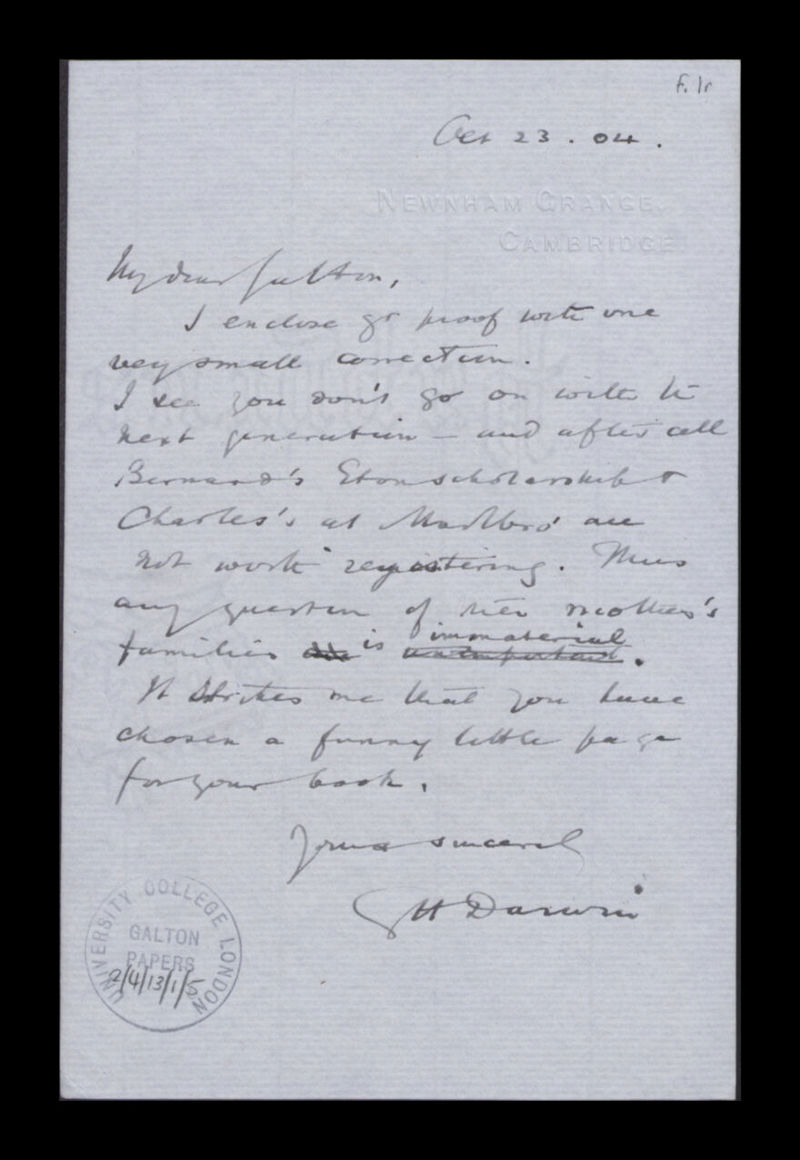 f. 1r
Oct 23. 04.
NEWNHAM GRANGE.
CAMBRIDGE
My dear Galton,
I enclose yr proof with one
very small correction.
I see you don't go on with the
next generation – and after all
Bernard's Eton scholarship &
Charles's at Marlbro' are
not worth registering. Thus
any question of their mother's
families is immaterial.
It strikes me that you have
chosen a funny little page
for your book.
Yours sincerely
G H Darwin
UNIVERSITY COLLEGE LONDON
GALTON
PAPERS
2/4/13/1/5